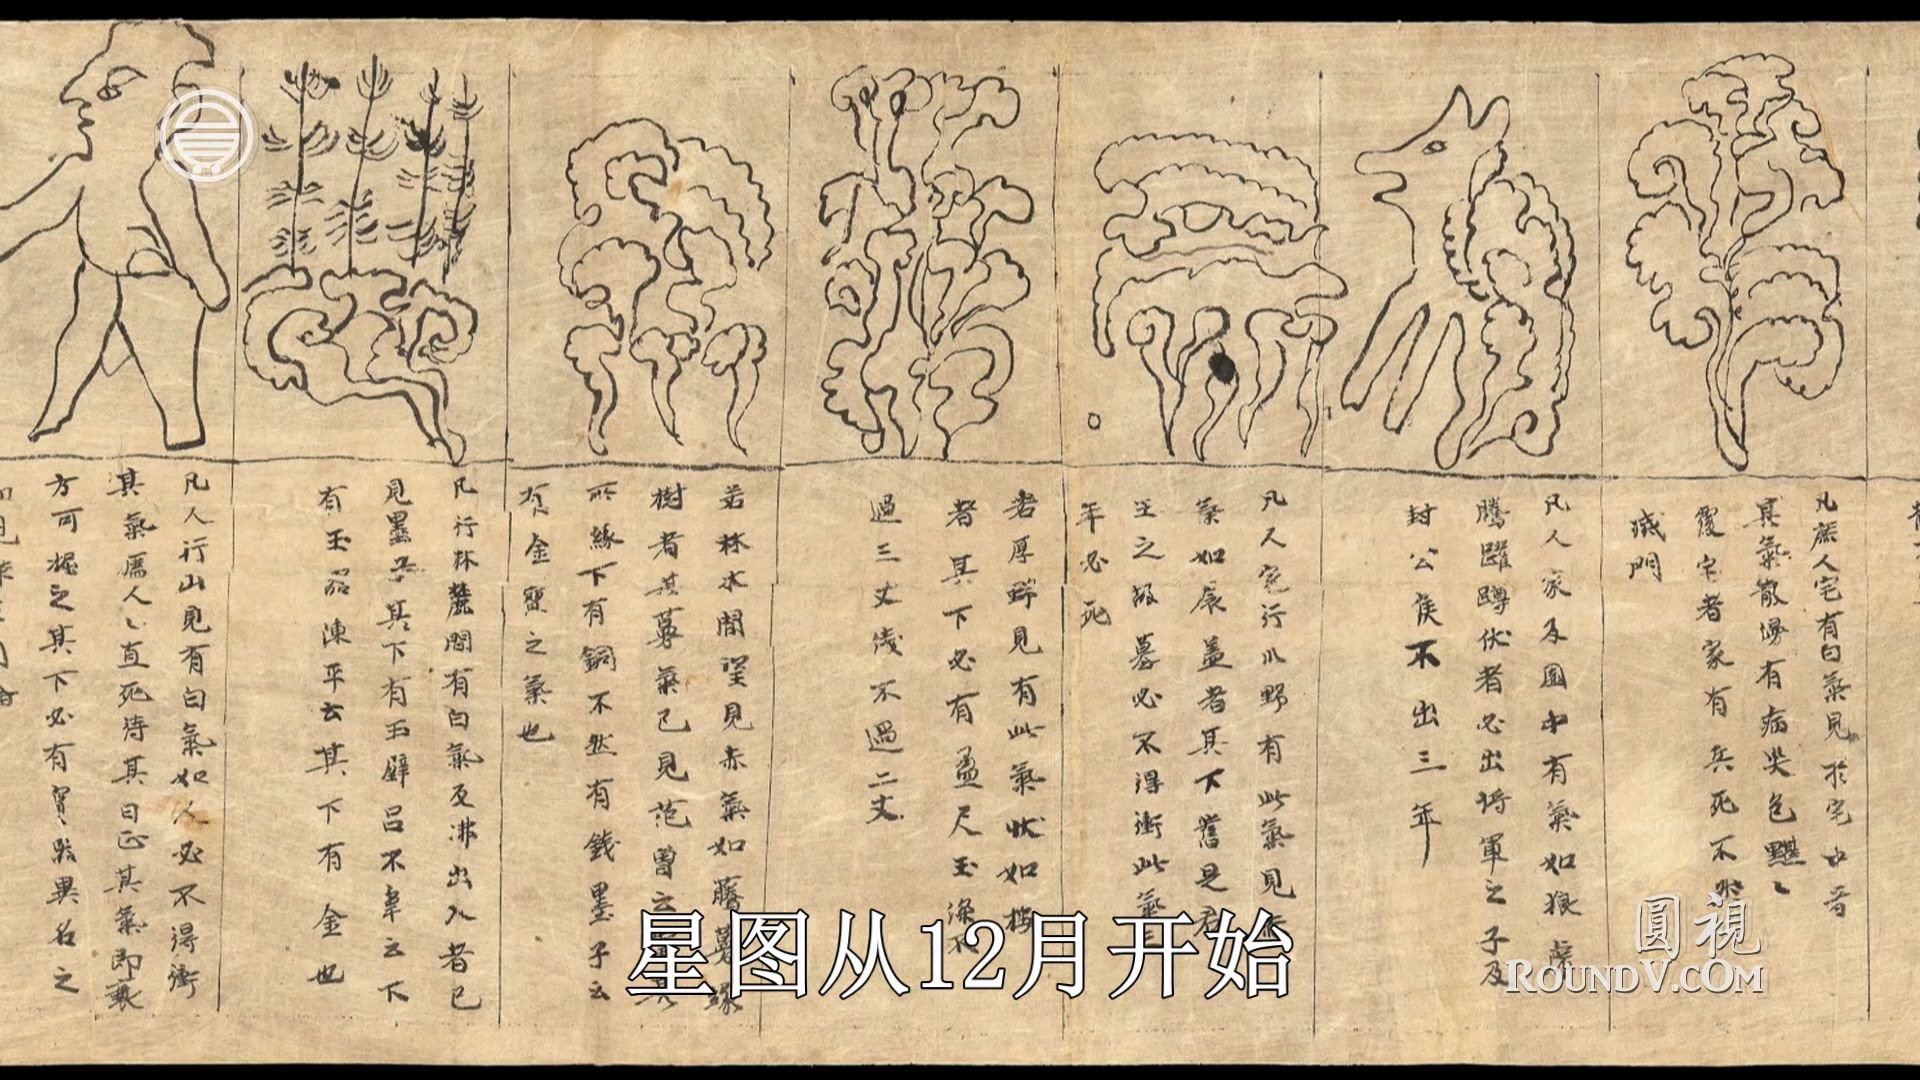 凡庶人宅有白氣見於宅中者
其氣散漫有病災色黯〻
覆宅者家有兵死不出
滅門
凡人家及園中有氣如狼虎
騰躍蹲伏者必出將軍之子及
封公侯不出三年
凡人家行川野有此氣見
氣如展盖者其下舊是君
王之墓必不得衝此氣
年必死
若厚野見有此氣狀如樓
者其下必有盈尺玉深不
過三丈淺不過二丈
若林木間望見赤氣如騰
樹者其募氣已見范曾云
所緣下有銅不然有錢墨子云
有金寶之氣也
凡行林麓間有白氣及沸出入者已
見墨子其下有玉璧呂不韋云下
有玉器陳平云其下有金也
凡人行山見有白氣如人必不得衝
其氣爲人〻直死待其日正其氣即衰
方可掘之其下必有寶器異名之
星图从12月开始
圓視
ROUNDV.COM